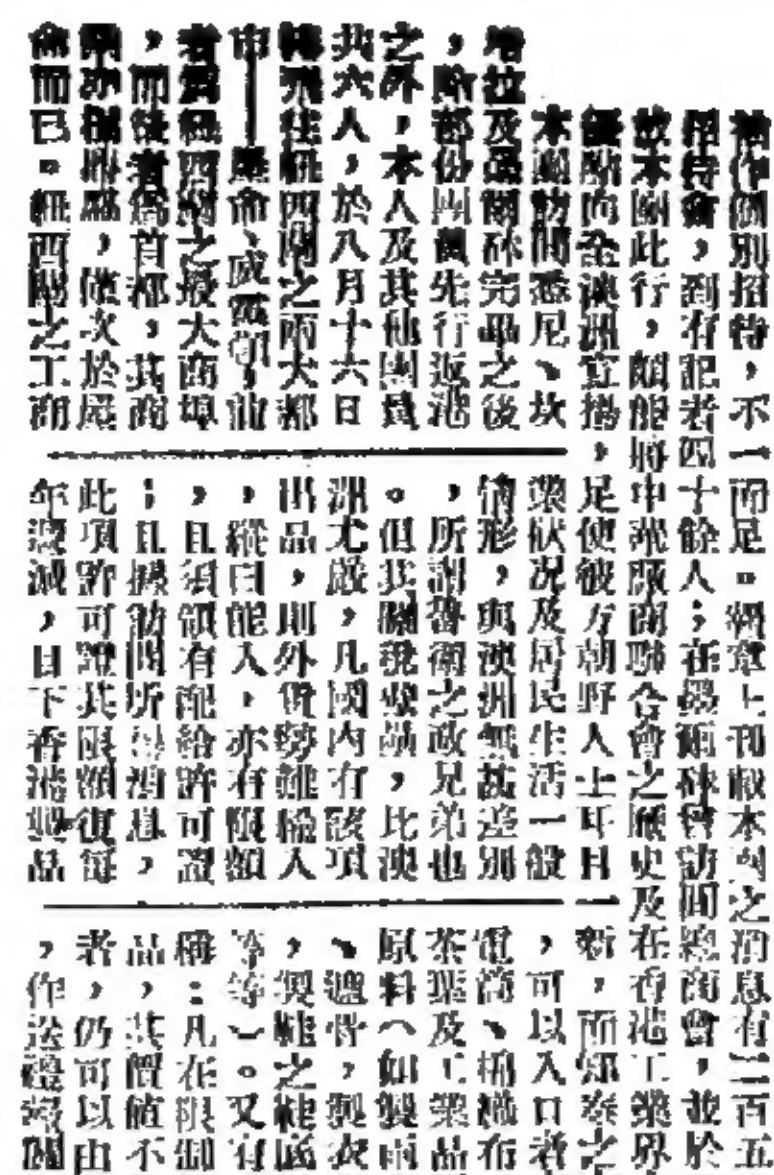 袖作個別招待,不一而足。網章上刊載本團之消息有二百五
招待會,到有記者四十餘人;在墨爾砵曾訪問總商會,並於
故本團此行,頗能將中華廠商聯合會之歷史及在香港工業界
優點向全澳洲宣揚,足使彼方朝野人士耳目一新,而知泰之
本團訪問悉尼、坎
培拉及墨爾砵完畢之後
,除部份團員先行返港
之外,本人及其他團員
共六人,於八月十六日
轉飛往紐西蘭之兩大都
市——屋侖、威靈頓,前
者為紐西蘭之最大商埠
,而後者為首都,其商
業亦極興盛,僅次於屋
侖而已。紐西蘭之工商
業狀况及居民生活一般
情形,與澳洲無甚差別
,所謂魯衛之政兄弟也
。但其關税壁壘,比澳
洲尤嚴,凡國內有該項
出品,則外貨勢難輸入
,縱曰能入,亦有限額
,且須領有配給許可證
;且據訪問所得消息,
此項許可證其限額復每
年遞減,目下香港製品
,可以入口者
電筒、棉織布
茶葉及工業品
原料(如製雨
、遮骨,製衣
,製鞋之鞋底
等等)。又有
稱:凡在限制
品,其價值不
者,仍可以由
,作送禮